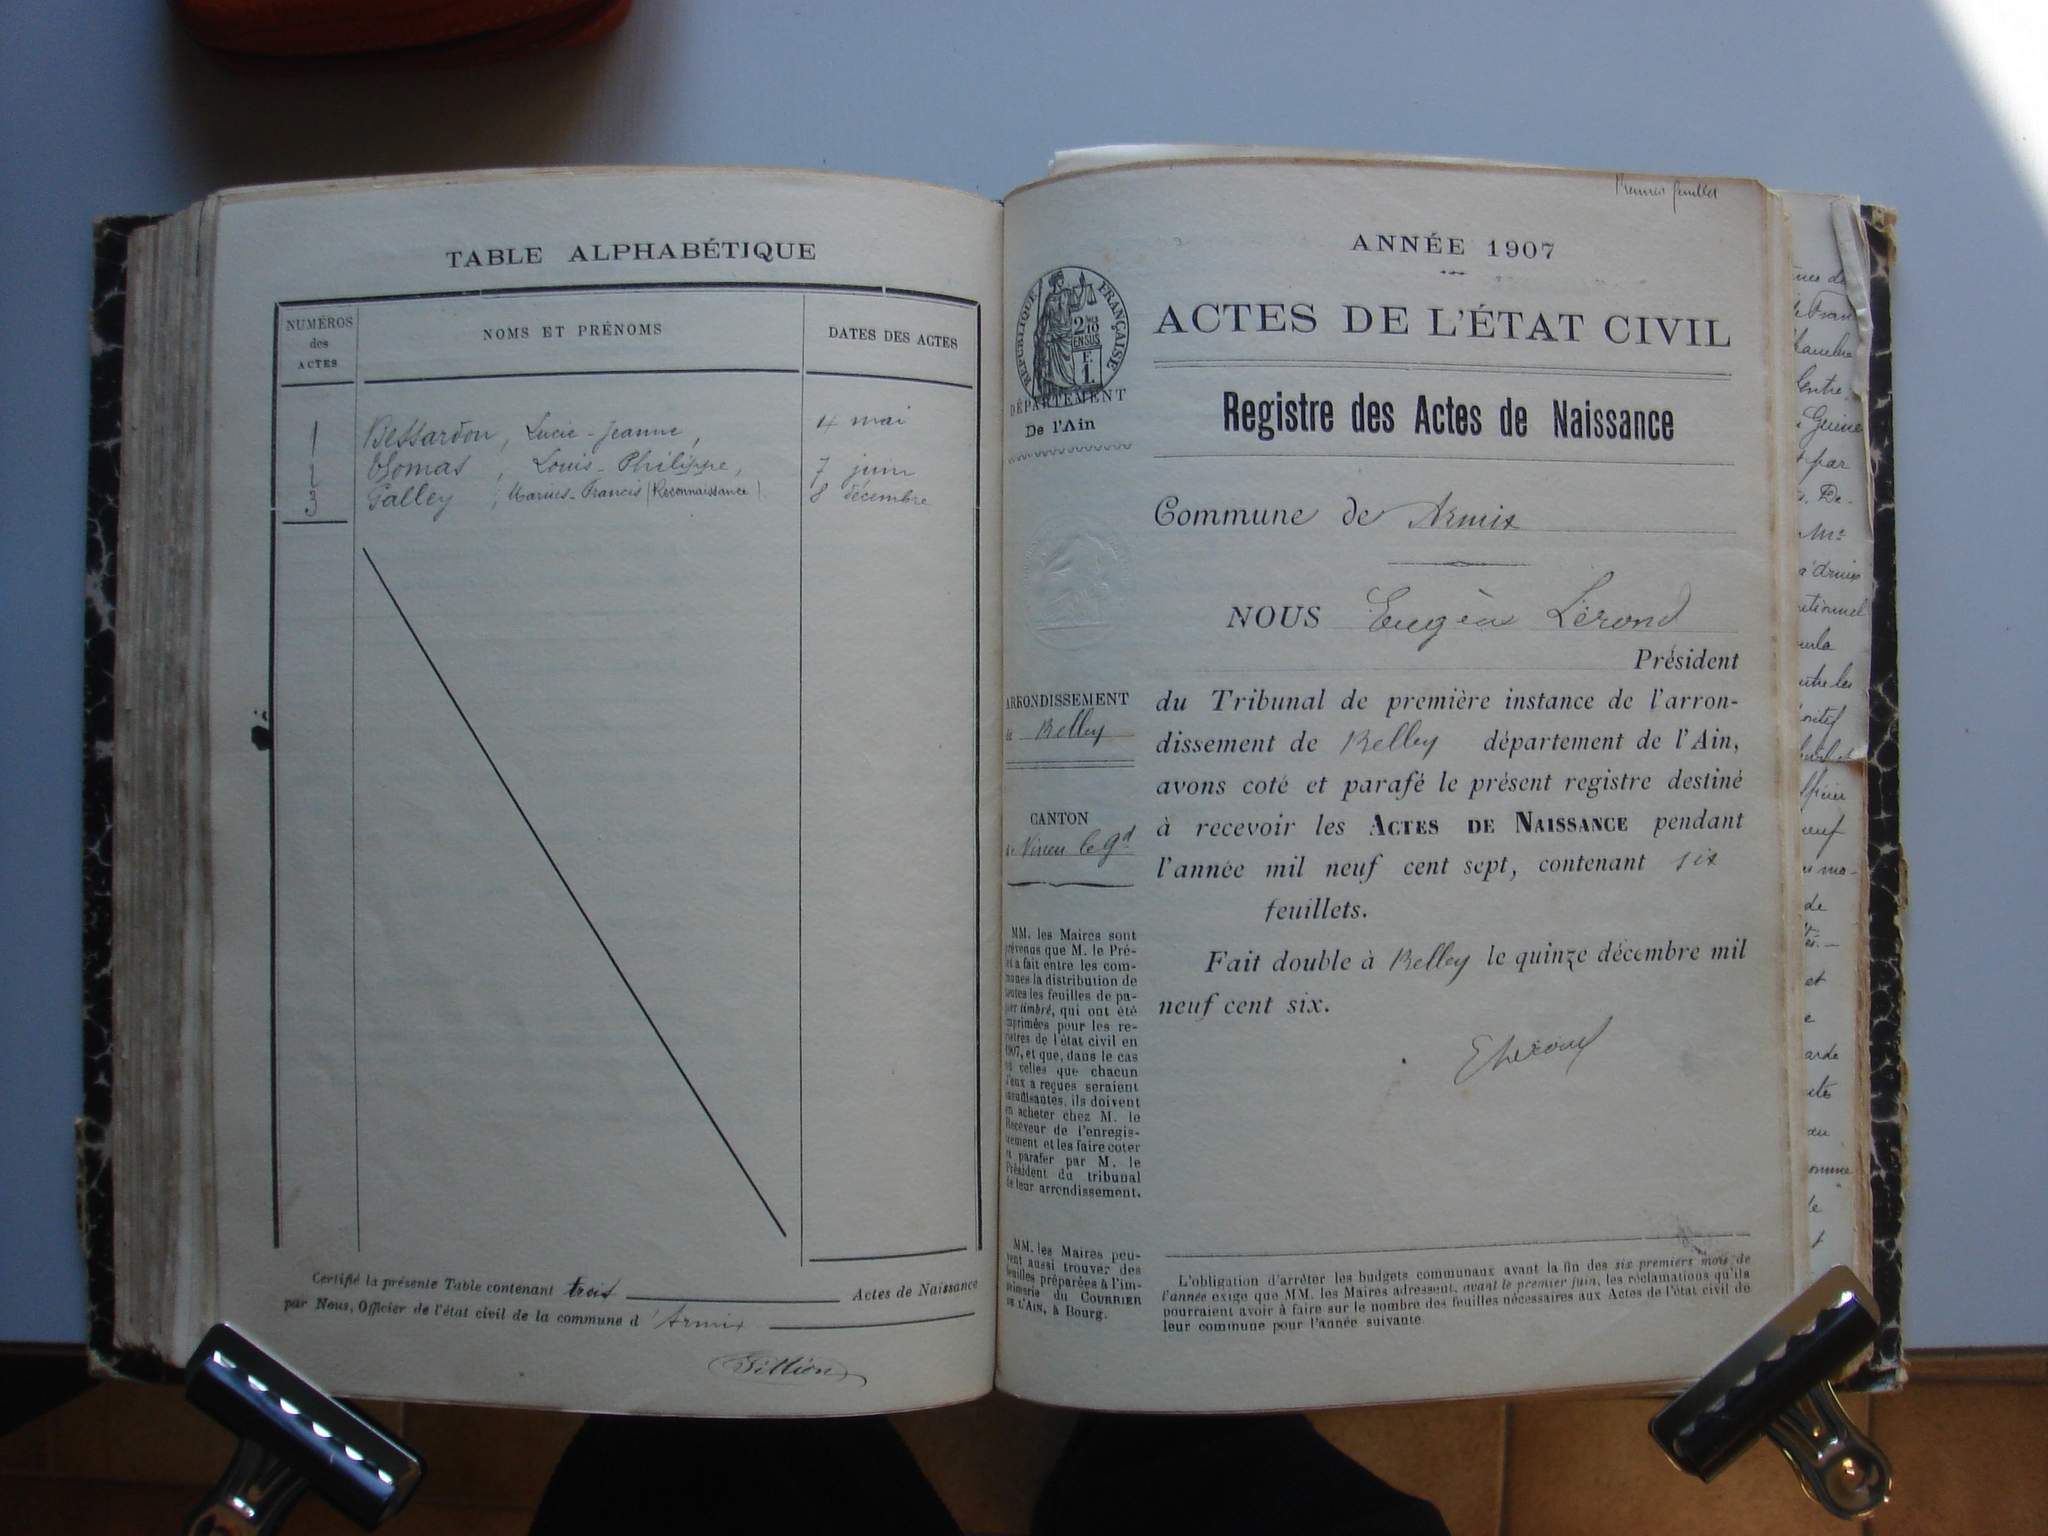 TABLE ALPHABÉTIQUE
NUMÉROS des ACTES
NOMS ET PRÉNOMS
DATES DES ACTES
1 Bessardon, Lucie-Jeanne, 4 mai
2 Thomas, Louis-Philippe, 7 juin
3 Galley, Marius-Francis (Reconnaissance) 8 décembre
Certifié la présente Table contenant trois Actes de Naissance
par Nous, Officier de l'état civil de la commune d'Armix
Premier feuillet
ANNÉE 1907
RÉPUBLIQUE FRANÇAISE
ACTES DE L'ÉTAT CIVIL
DÉPARTEMENT
De l'Ain
Registre des Actes de Naissance
Commune de Armix
NOUS Eugène Lérond
Président
ARRONDISSEMENT
de Belley
du Tribunal de première instance de l'arron-
dissement de Belley département de l'Ain,
avons coté et parafé le présent registre destiné
à recevoir les ACTES DE NAISSANCE pendant
l'année mil neuf cent sept, contenant six
feuillets.
Fait double à Belley le quinze décembre mil
neuf cent six.
CANTON
de Virieu le Gd
MM. les Maires sont
prévenus que M. le Pré-
et a fait entre les com-
munes la distribution de
toutes les feuilles de pa-
pier timbré, qui ont été
imprimées pour les re-
gistres de l'état civil en
1907, et que, dans le cas
où celles que chacun
d'eux a reçues seraient
insuffisantes, ils doivent
en acheter chez M. le
Receveur de l'enregis-
trement et les faire coter
et parafer par M. le
Président du tribunal
de leur arrondissement.
MM. les Maires peu-
vent aussi trouver des
feuilles préparées à l'im-
primerie du COURRIER
DE L'AIN, à Bourg.
L'obligation d'arrêter les budgets communaux avant la fin des six premiers mois de
l'année exige que MM. les Maires adressent, avant le premier juin, les réclamations qu'ils
pourraient avoir à faire sur le nombre des feuilles nécessaires aux Actes de l'état civil de
leur commune pour l'année suivante.